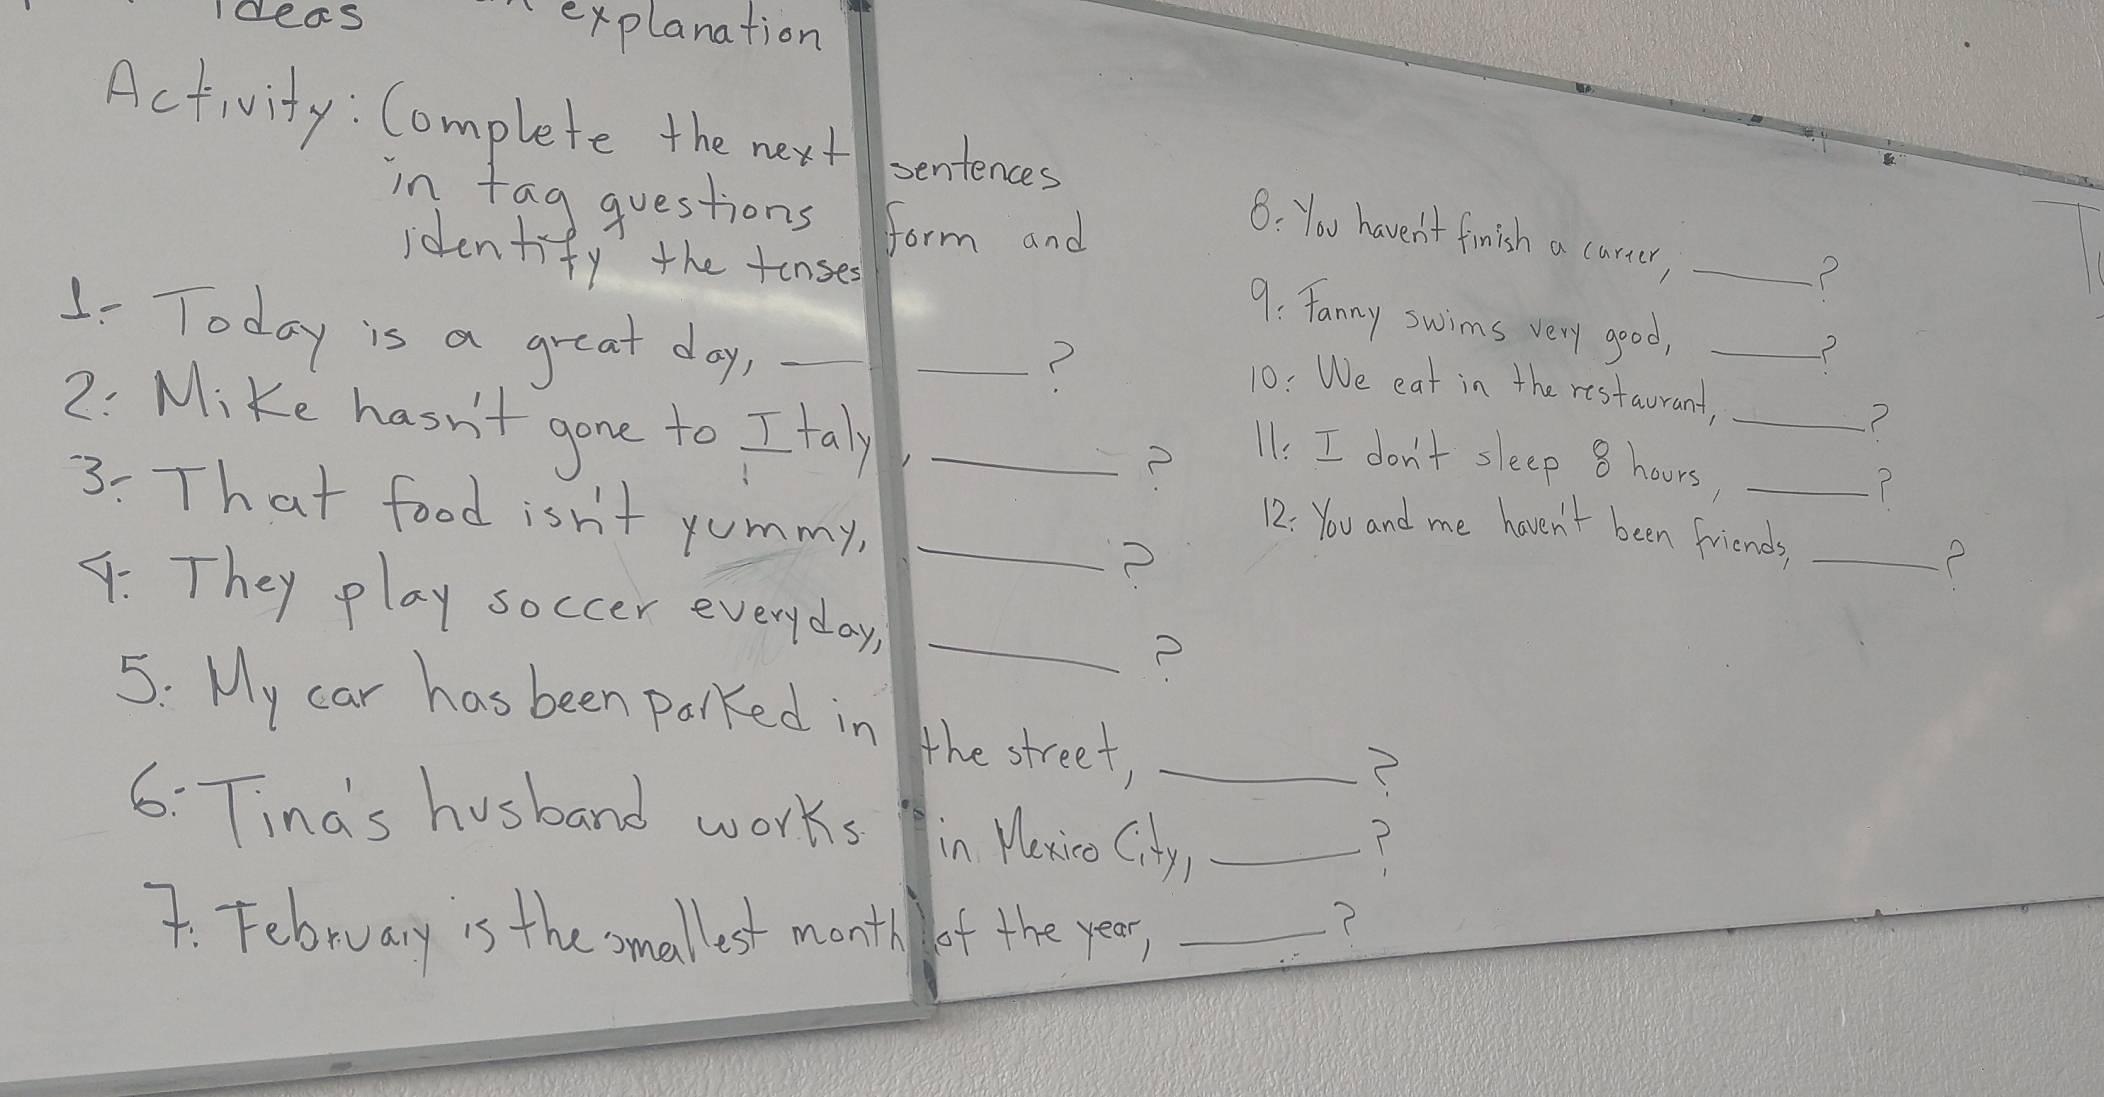 ideas explanation
Activity: Complete the next sentences
in tag questions form and
identify the tenses
1.- Today is a great day, ______ ______?
2.- Mike hasn't gone to Italy, ______?
3.- That food isn't yummy, ______?
4.- They play soccer everyday, ______?
5.- My car has been parked in the street, ______?
6.- Tina's husband works in Mexico City, ______?
7.- February is the smallest month of the year, ______?
8.- You haven't finish a career, ______?
9.- Fanny swims very good, ______?
10.- We eat in the restaurant, ______?
11.- I don't sleep 8 hours, ______?
12.- You and me haven't been friends, ______?